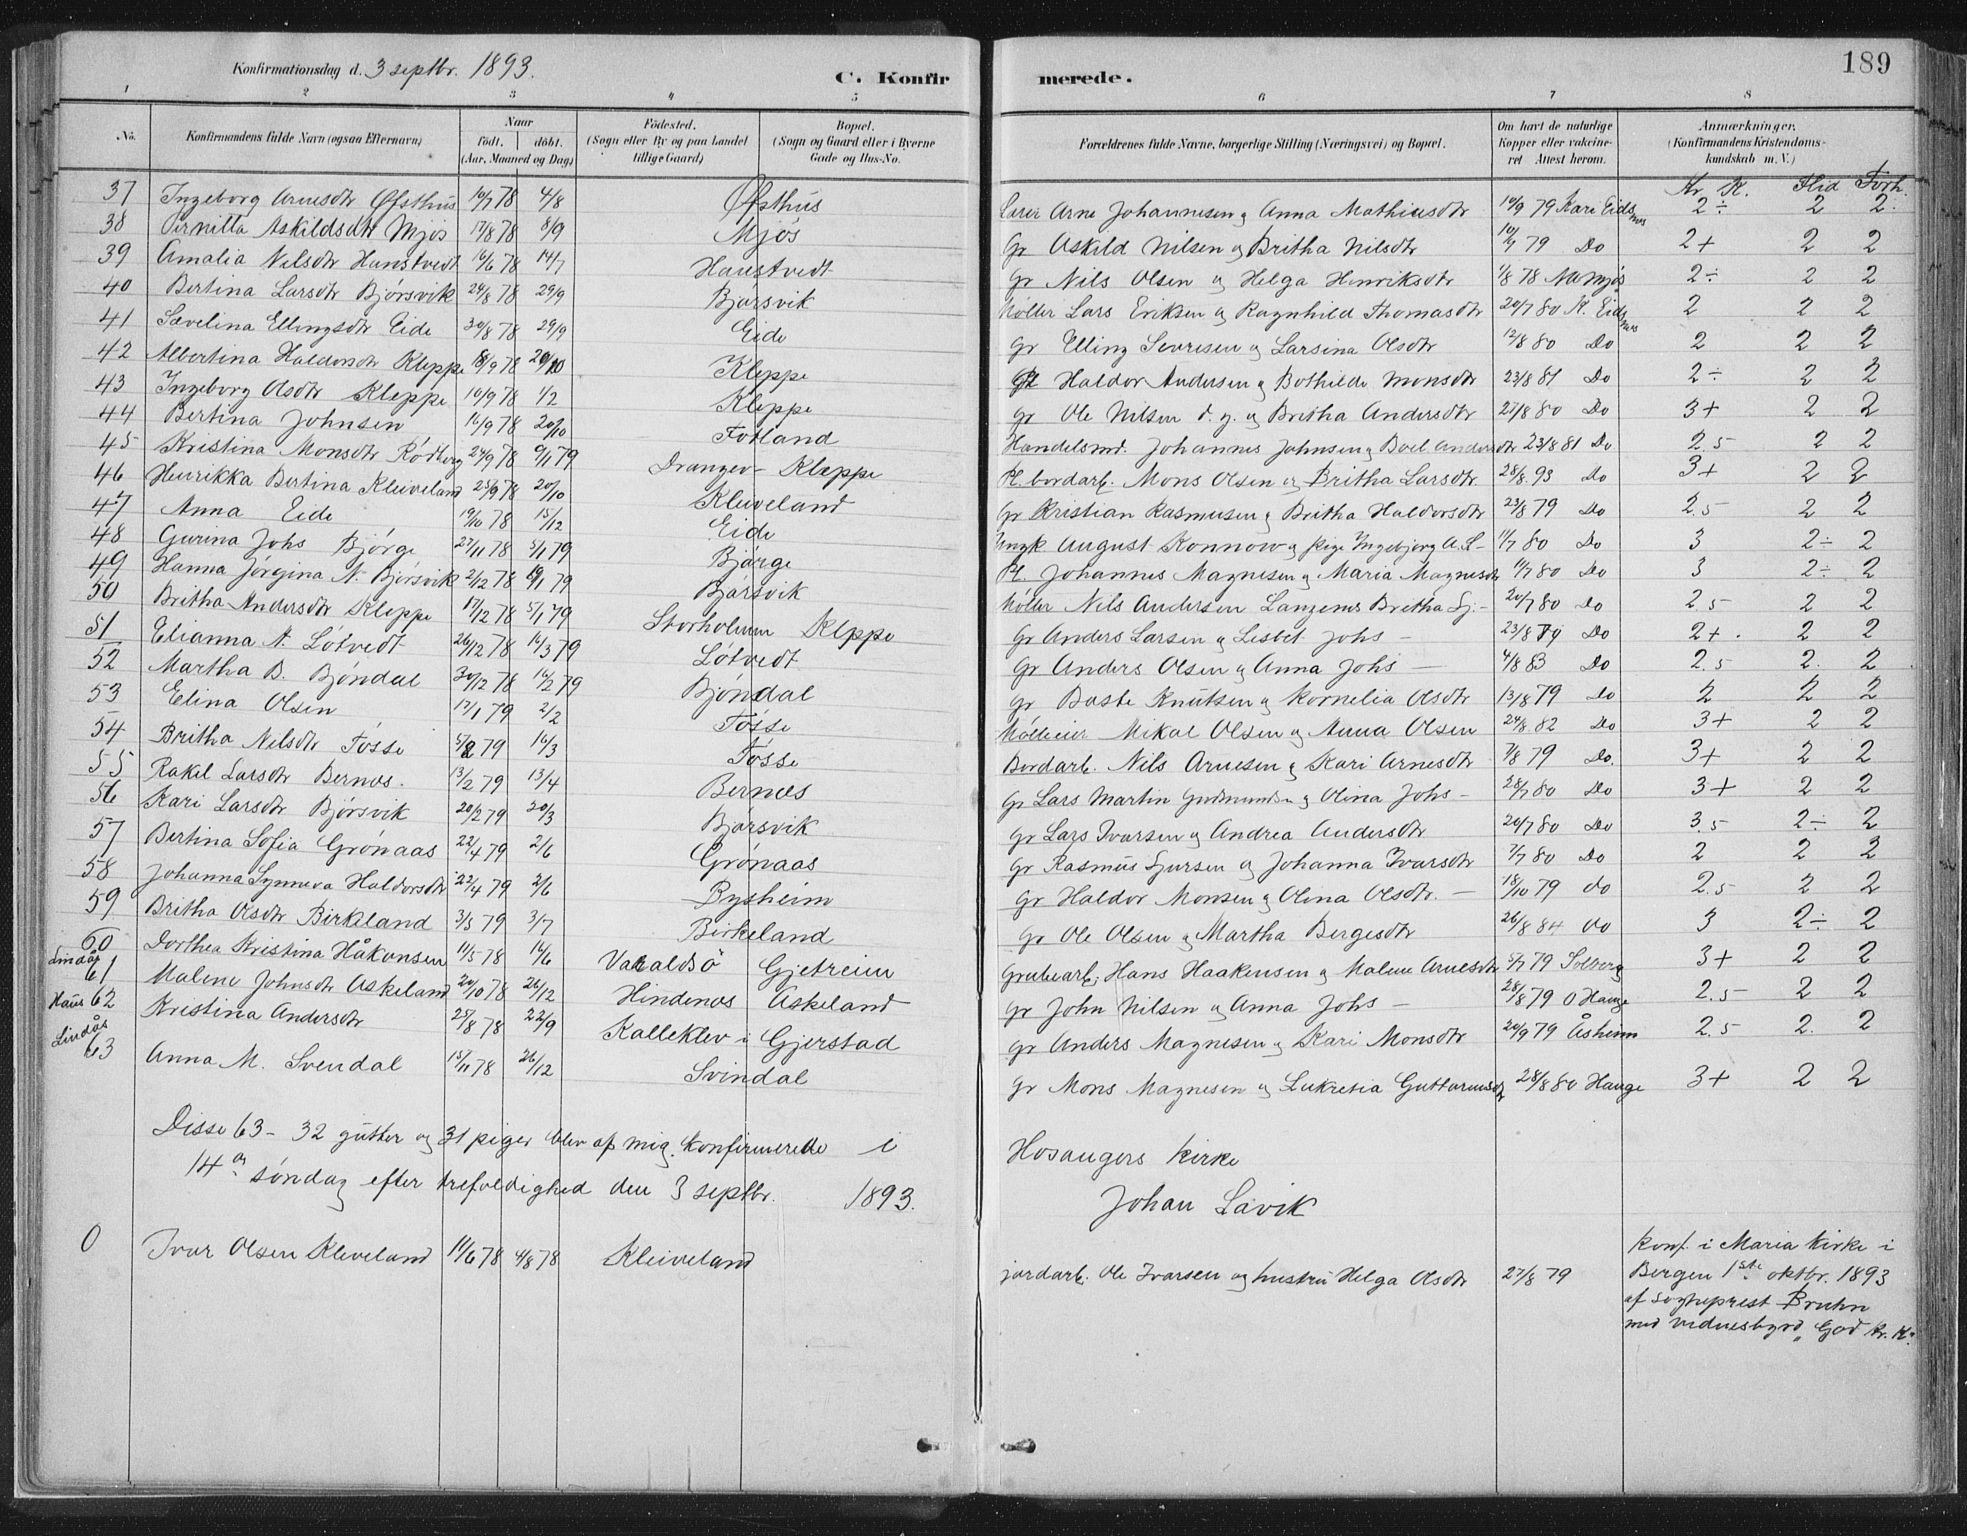 Konfirmationsdag d. 3 septbr. 1893.
C. Konfir merede. 189
1 2 3 4 5 6 7 8
No. Konfirmandens fulde Navn (ogsaa Efternavn) Naar født. døbt. (Aar, Maaned og Dag) Fødested. (Sogn eller By og paa Landet tillige Gaard) Bopæl. (Sogn og Gaard eller i Byerne Gade og Hus-No. Forældrenes fulde Navne, borgerlige Stilling (Næringsvei) og Bopæl. Om havt de naturlige Kopper eller vakcineret. Attest herom. Anmærkninger. (Konfirmandens Kristendomskundskab m. V.)
Kr. K. Flid Forh.
37 Ingeborg Arnesdtr Østhus 10/7 78 4/8 Østhus Lærer Arne Johannesen og Anna Mathiesdtr 10/9 79 Kari Eidsnes 2÷ 2 2
38 Pernilla Askildsdtr Mjøs 17/8 78 8/9 Mjøs Gr Askild Nilsen og Britha Nilsdtr 10/7 79 Do 2+ 2 2
39 Amalia Nilsdtr Haustvedt 16/6 78 14/7 Haustvedt Gr Nils Olsen og Helga Henriksdtr 1/8 78 2÷ 2 2
40 Bertina Larsdtr Bjørsvik 24/8 78 29/9 Bjørsvik Møller Lars Eriksen og Ragnhild Thomasdtr 20/7 80 K. Eidsnes 2 2 2
41 Sevelina Ellingsdtr Eide 30/8 78 29/9 Eide Gr Elling Severesen og Larsina Olsdtr 12/8 80 Do 2 2 2
42 Albertina Haldorsdtr Kleppe 8/9 78 20/10 Kleppe Haldor Andersen og Bothilde Monsdtr 23/8 81 Do 2÷ 2 2
43 Ingeborg Olsdtr Kleppe 10/9 78 1/2 Kleppe Gr Ole Nilsen d. y. og Britha Andersdtr 27/8 80 Do 3+ 2 2
44 Bertina Johnsen 16/9 78 20/10 Fotland Handelsmd. Johannes Johnsen og Boel Andersdtr 23/8 81 Do 2.5 2 2
45 Kristina Monsdtr Rødberg 24/9 78 9/1 79 Drangev- Kleppe Pl. bordarb. Mons Olsen og Britha Larsdtr. 28/8. 93 Do 3+ 2 2
46 Henrikka Bertina Kleiveland 25/9 78 20/10 Kleiveland Gr Kristian Rasmusen og Britha Haldorsdtr 23/8 79 Do 2.5 2 2
47 Anna Eide 19/10 78 15/12 Eide Ungk August Konnow og pige Ingebjørg A. L- 11/7 80 Do 3 2÷ 2
48 Gurina Johs Bjørge 27/11 78 5/1 79 Bjørge Pl. Johannes Magnesen og Maria Magnesdtr 11/7 80 Do 3 2÷ 2
49 Hanna Jørgina N. Bjørsvik 2/12 78 19/1 79 Bjørsvik Møller Nils Andersen Langenes Britha Sj.- 20/7 80 Do 2.5 2 2
50 Britha Andersdtr Kleppe 17/12 78 5/1 79 Storholmen Kleppe Gr Anders Larsen og Lisbet Johs - 23/8 79 Do 2+. 2 2
51 Elianna A. Løtvedt 26/12 78 16/3 79 Løtvedt Gr Anders Olsen og Anna Johs — 4/8 83 Do 2.5 2. 2
52 Martha B. Bjøndal 30/12 78 16/2 79 Bjøndal Gr Baste Knutsen og Kornelia Olsdtr 13/8 79 Do 2 2 2
53 Elina Olsen 12/1 79 2/2 Fosse Mølleeier Mikal Olsen og Anna Olsen 24/8 82 Do 3+ 2 2
54 Britha Nilsdtr Fosse 5/2 79 16/3 Fosse Bordarb. Nils Arnesen og Kari Arnesdtr 7/8 79 Do. 3+ 2 2
55 Rakel Larsdtr Bernæs. 13/2 79 13/4 Bernæs Gr Lars Martin Gudmundsen og Olina Johs- 28/7 80 Do 3+ 2 2
56 Kari Larsdtr Bjørsvik 20/2 79 20/3 Bjørsvik Gr Lars Ivarsen og Andrea Andersdtr 20/7 80 Do 3.5 2÷ 2
57 Bertina Sofia Grønaas 22/4 79 2/6 Grønaas Gr Rasmus Sjursen og Johanna Ivarsdtr 7/7 80 Do 2 2 2
58 Johanna Synneva Haldorsdtr 22/4 79 2/6 Bysheim Gr Haldor Monsen og Olina Olsdtr. — 18/10 79 do 2.5 2 2
59 Britha Olsdtr Birkeland 3/5 79 3/7 Birkeland Gr Ole Olsen og Martha Bergesdtr 26/8 84 do 3 2÷ 2
60 Dorthea Kristina Håkonsen 11/5 78 16/6 Varaldsö Gjetreim Grubearb. Hans Haakensen og Malene Arnesdtr 5/7 79 Solberg 3+ 2 2
Lindås 61 Malene Johnsdtr Askeland 20/10 78 26/12 Hindenæs Askeland Gr John Nilsen og Anna Johs - 28/8 79 O Hauge 2.5 2 2
Haus 62 Kristina Andersdtr 25/8 78 22/9 Kalleklev i Gjerstad Gr Anders Magnesen og Kari Monsdtr 20/9 79 Åsheim 2.5 2. 2
Lindås 63 Anna M. Svendal 15/11 78 26/12 Svindal Gr Mons Magnesen og Lukretia Guttormsdtr 28/8 80 Hauge 3+ 2 2
Disse 63 - 32 gutter og 31 piger blev af mig konfirmerede i Hosangers kirke
14de søndag efter trefoldighed den 3 septbr. 1893. Johan Lavik
0 Ivar Olsen Kleveland 11/6 78 4/8 78 Kleiveland jordarb. Ole Ivarsen og hustru Helga Olsdtr 27/8 79 Konf. i Maria Kirke i
Bergen 1ste oktbr. 1893
af sogneprest Bruhn
med vidnesbyrd "God kr. k."